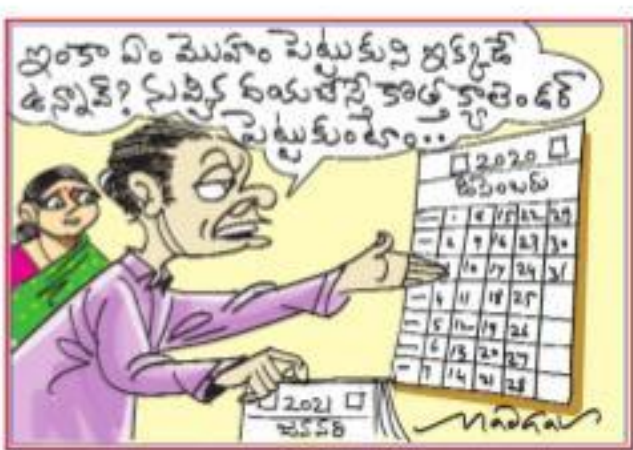 ఇంకా ఏం మొహం పెట్టుకుని ఇక్కడే
ఉన్నావ్? నువ్విక దయచేస్తే కొత్త క్యాలెండర్
పెట్టుకుంటాం..
2020
డిసెంబరు
1 8 15 22 29
2 9 16 23 30
3 10 17 24 31
4 11 18 25
5 12 19 26
6 13 20 27
7 14 21 28
2021
జనవరి